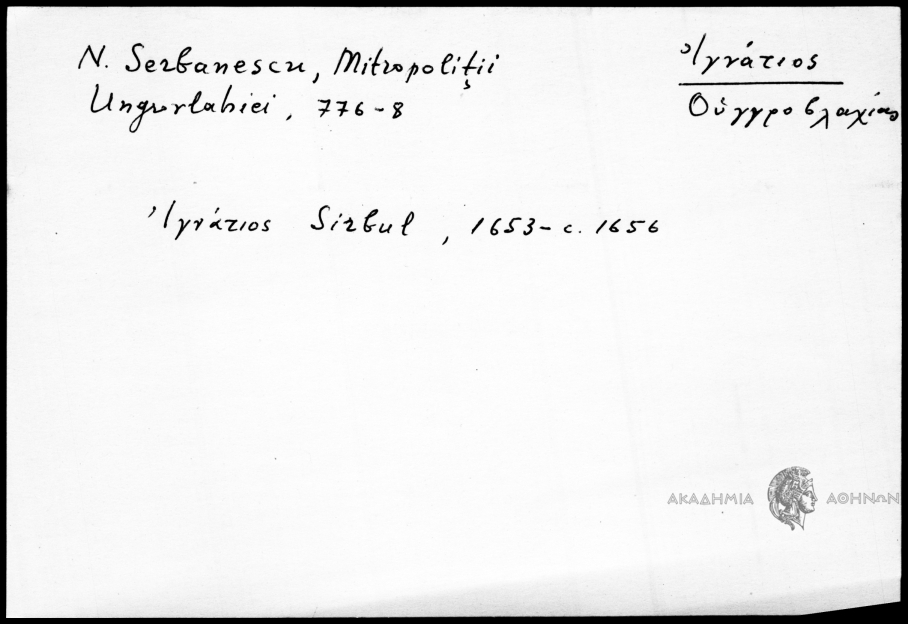 N. Serbanescu, Mitropoliții
Ungrovlahiei, 776-8
Ἰγνάτιος
Οὐγγροβλαχίας
Ἰγνάτιος Sîrbul, 1653-c. 1656
ΑΚΑΔΗΜΙΑ ΑΘΗΝΩΝ